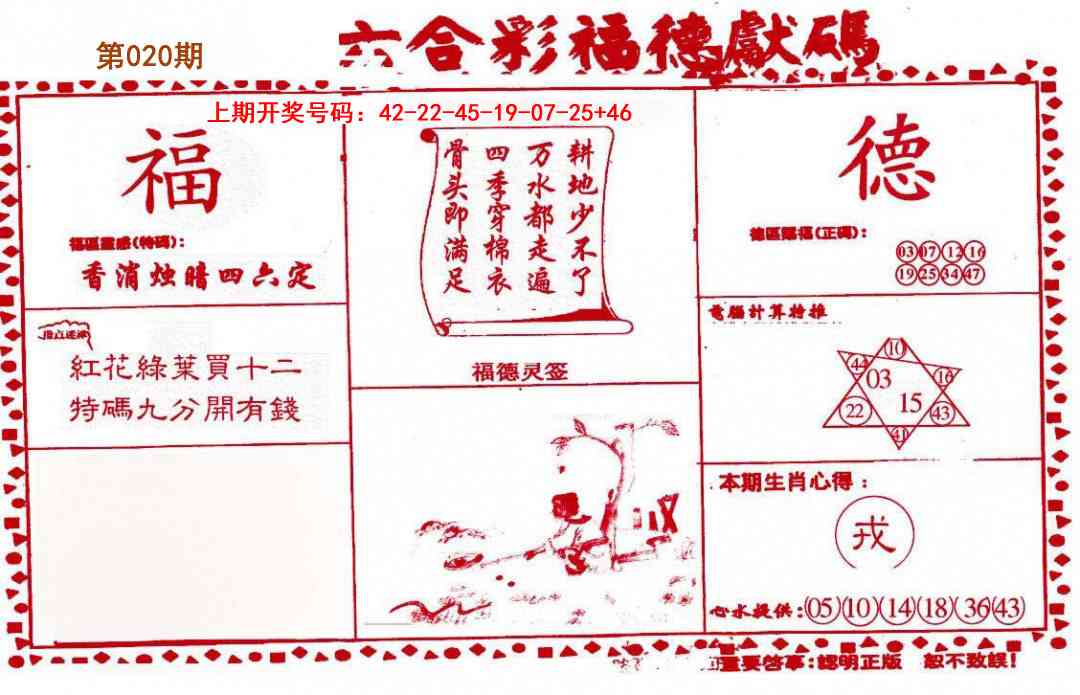 第020期
六合彩福德獻碼
上期开奖号码：42-22-45-19-07-25+46
福
香消烛暗四六定
紅花綠葉買十二
特碼九分開有錢
耕地少不了
万水都走遍
四季穿棉衣
骨头即满足
福德灵签
德
德區賜福(正碼)：
03 07 12 16
19 25 34 47
電腦計算特推
10
44 03 16
22 15 43
41
本期生肖心得：
戎
心水提供:(05)(10)(14)(18)(36)(43)
重要啓事:認明正版 恕不致誤!